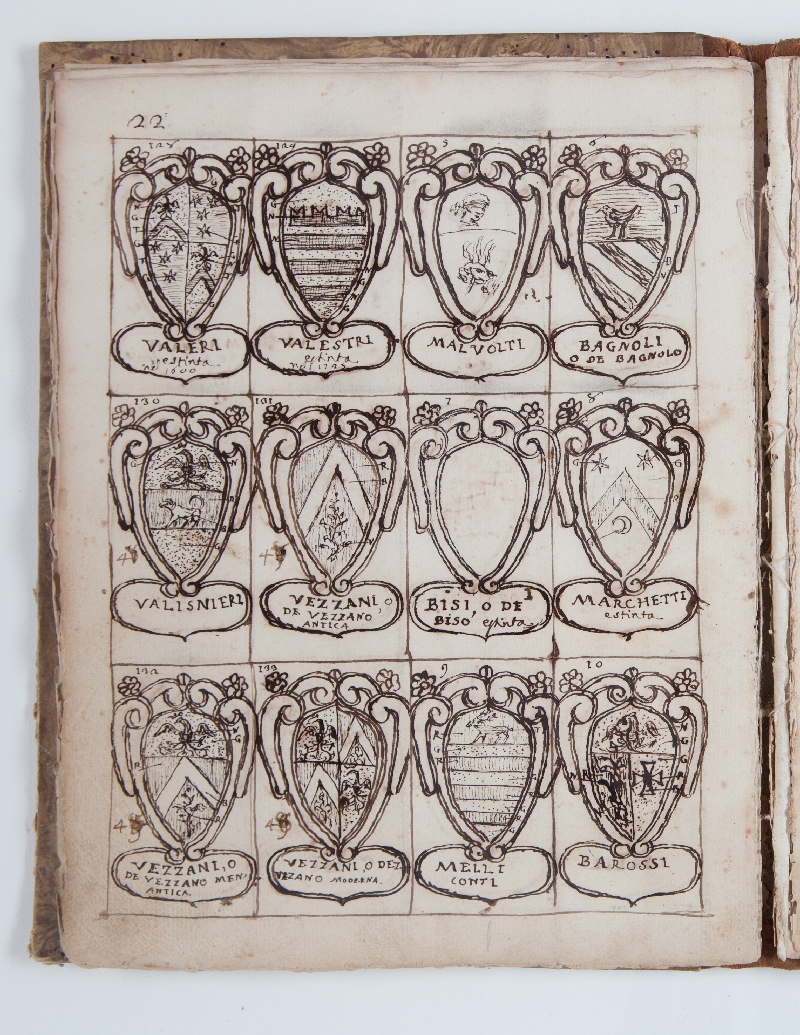 22
128
129
5
6
VALERI
estinta
nel 1600
VALESTRI
estinta
MALVOLTI
BAGNOLI
O DE BAGNOLO
130
131
7
8
VALISNIERI
VEZZANI, O
DE VEZZANO
ANTICA
BISI, O DE
BISO estinta
MARCHETTI
estinta
132
133
9
10
VEZZANI, O
DE VEZZANO MEN
ANTICA.
VEZZANI, O DE
VEZANO MODERNA.
MELLI
CONTI
BAROSSI